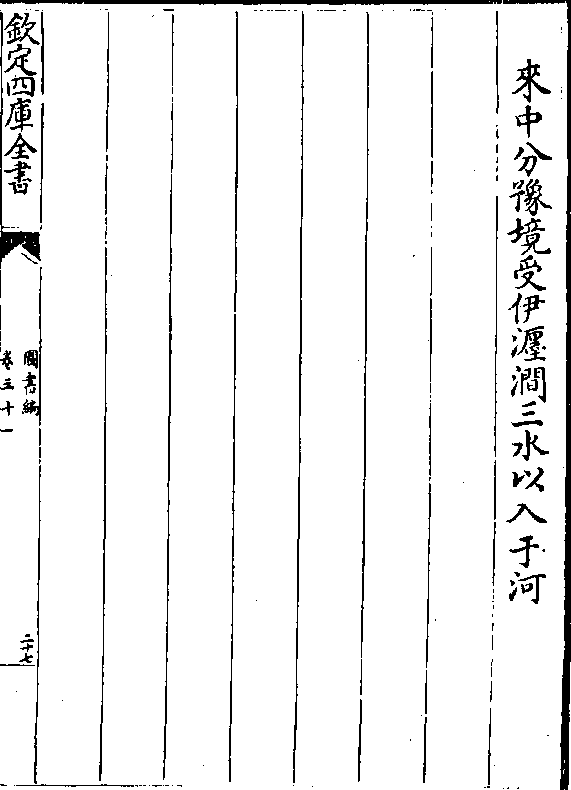 來中分豫境受伊瀍澗三水以入于河
欽定四庫全書
圖書編
卷三十一
二十七